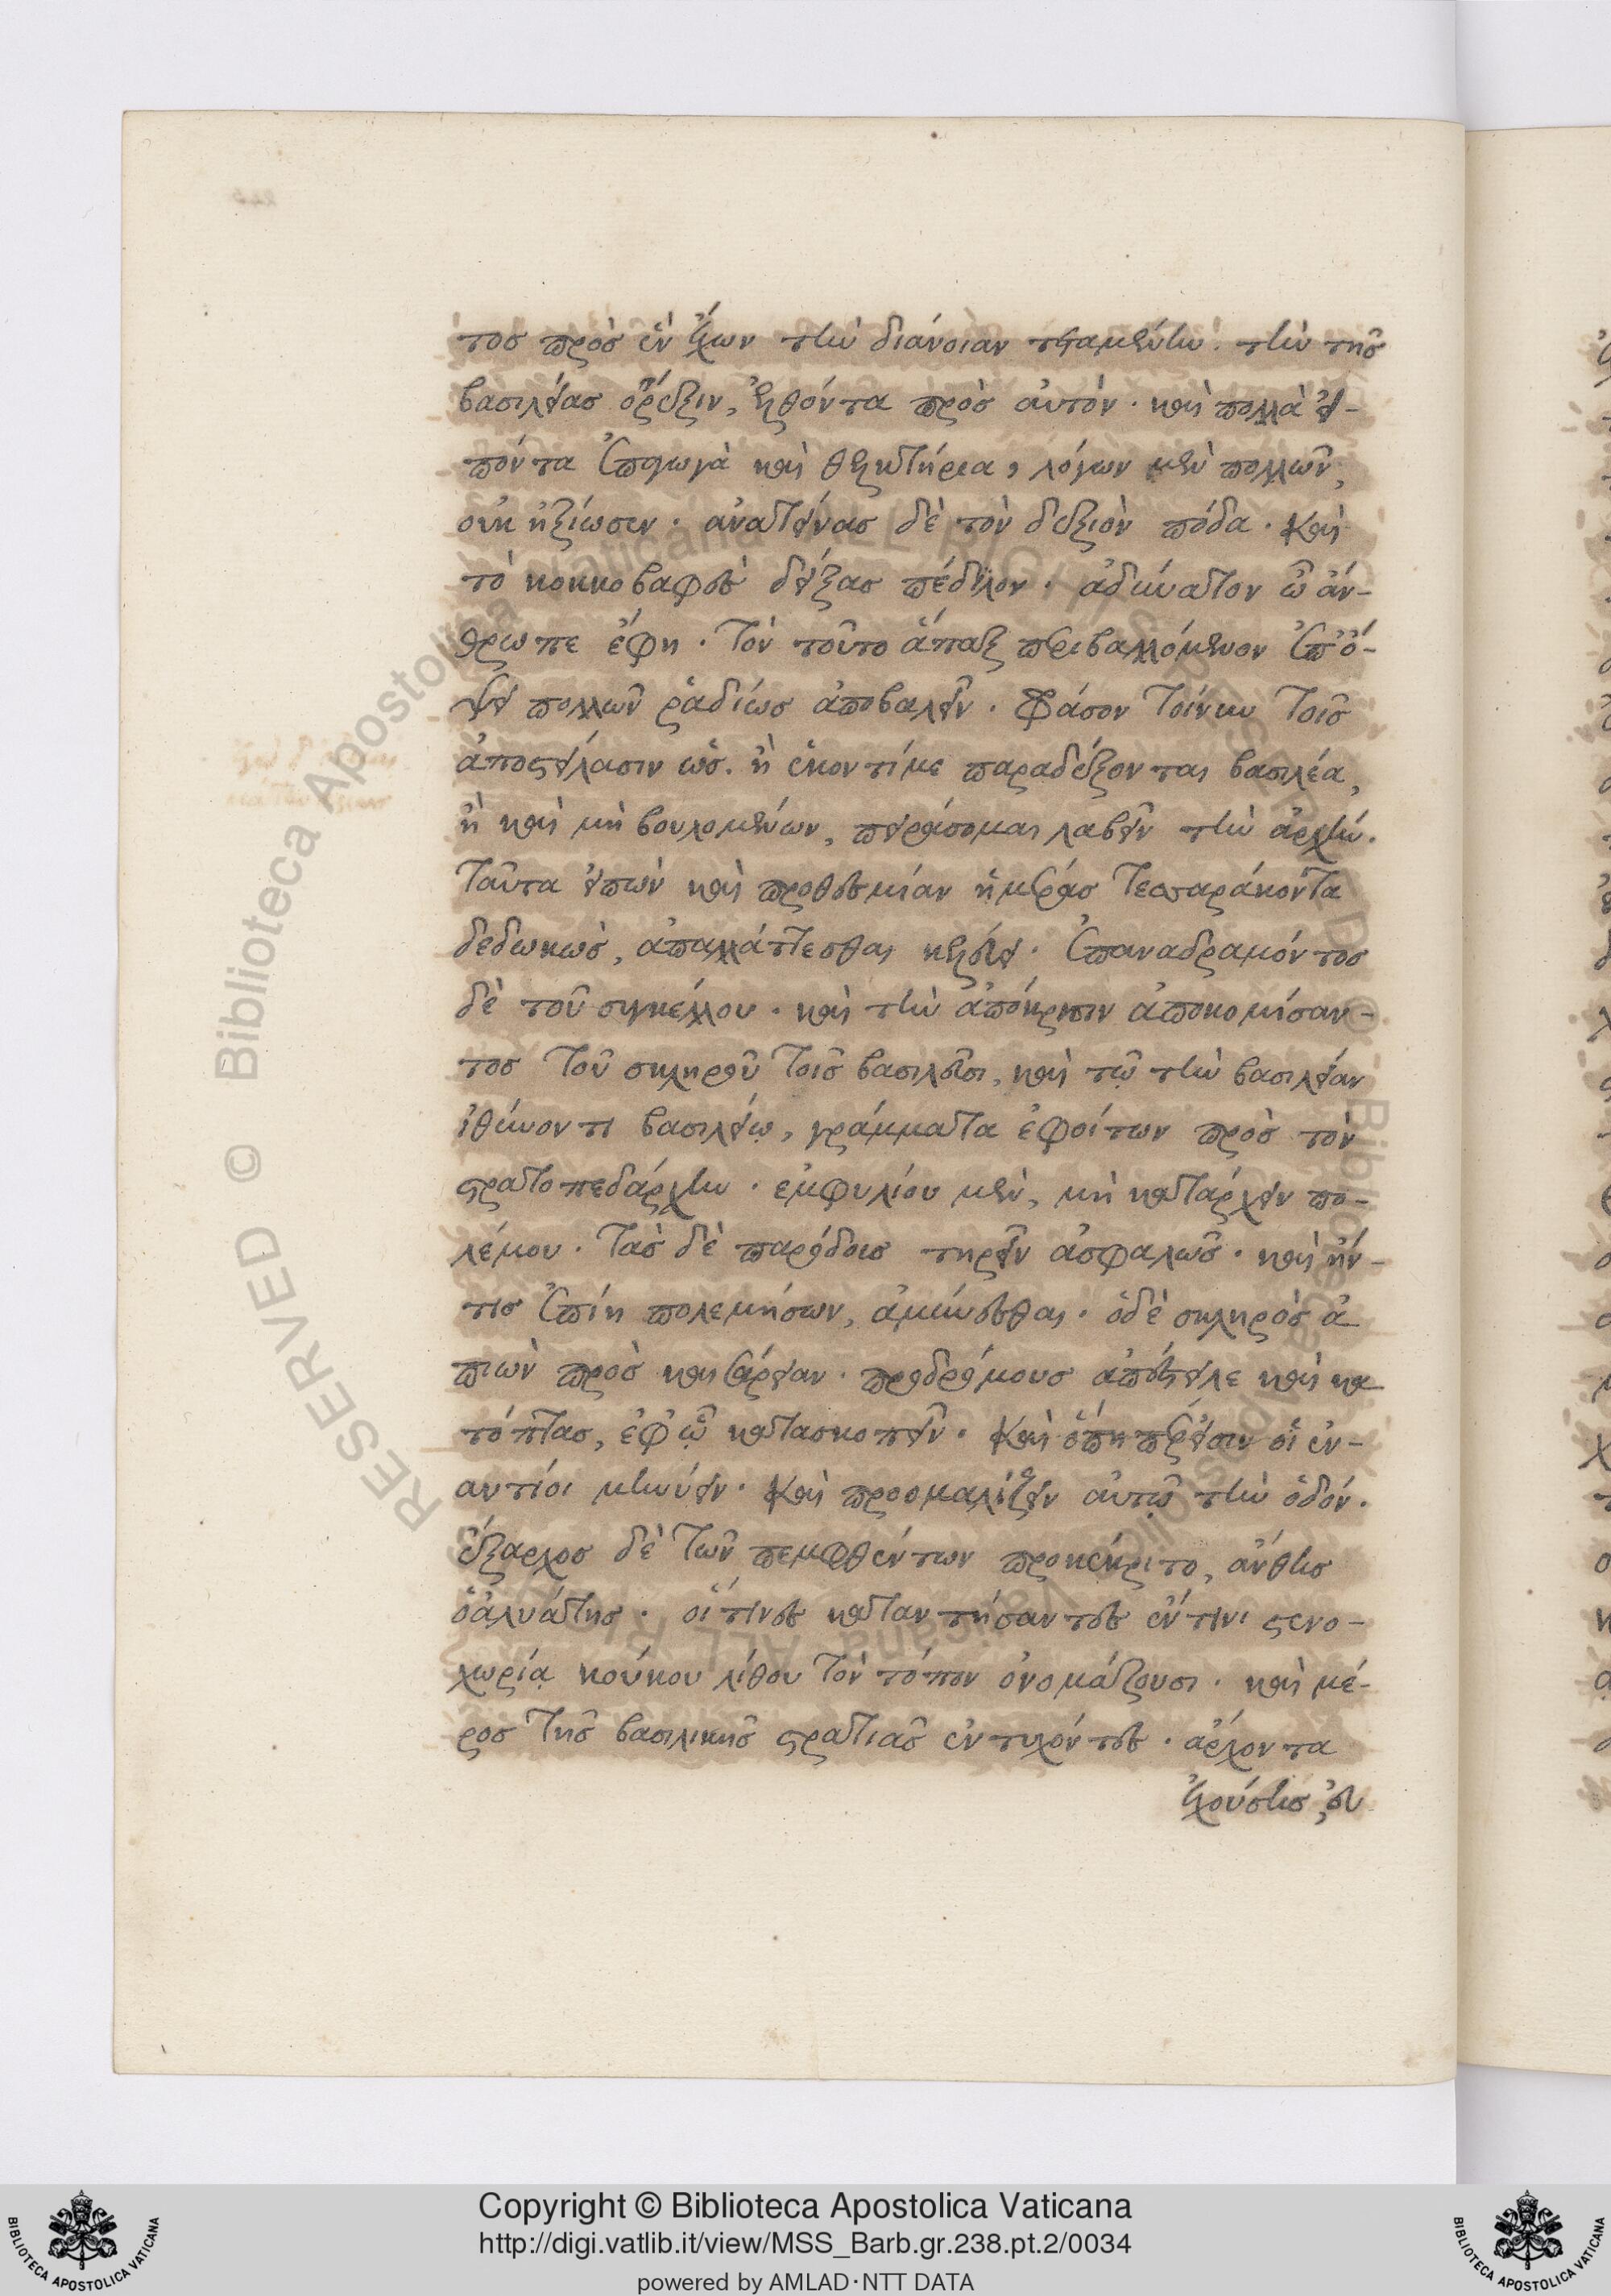 τος πρὸς ἓν ἔχων τὴν διάνοιαν τεταμένην. τὴν τῆς
βασιλείας ὄρεξιν, ἐλθόντα πρὸς αὐτόν. καὶ πολλὰ εἰ-
πόντα ἐπαγωγὰ καὶ θελκτήρια, λόγων μὲν πολλῶν,
οὐκ ἠξίωσεν. ἀνατείνας δὲ τὸν δεξιὸν πόδα. καὶ
τὸ κοκκοβαφὲς δείξας πέδιλον. ἀδύνατον ὦ ἄν-
θρωπε ἔφη. τὸν τοῦτο ἅπαξ περιβαλλόμενον ἐπ ὄ-
ψει πολλῶν ῥαδίως ἀποβαλεῖν. φάσον τοίνυν τοῖς
ἀποστείλασιν ὡς. ἢ ἑκοντί με παραδέξονται βασιλέα,
ἢ καὶ μὴ βουλομένων, πειράσομαι λαβεῖν τὴν ἀρχήν.
ταῦτα εἰπὼν καὶ προθεσμίαν ἡμέρας τεσσαράκοντα
δεδωκὼς, ἀπαλλάττεσθαι κελεύει. ἐπαναδραμόντος
δὲ τοῦ συγκέλλου. καὶ τὴν ἀπόκρισιν ἀποκομίσαν-
τος τοῦ σκληροῦ τοῖς βασιλεῦσι, καὶ τῷ τὴν βασιλείαν
ἰθύνοντι βασιλείῳ, γράμματα ἐφοίτων πρὸς τὸν
στρατοπεδάρχην. ἐμφυλίου μὲν, μὴ κατάρχειν πο-
λέμου. τὰς δὲ παρόδοις τηρεῖν ἀσφαλῶς. καὶ ἤν-
τις ἐπίη πολεμήσων, ἀμύνεσθαι. ὁδὲ σκληρὸς ἀ
πιὼν πρὸς καισάρειαν. προδρόμους ἀπέστειλε καὶ κα
τόπτας, ἐφ ᾧ κατασκοπεῖν. καὶ ὅπη πάρεισιν οἱ ἐν-
αντίοι μηνύειν. καὶ προομαλίζειν αὐτῷ τὴν ὁδόν.
ἔξαρχος δὲ τῶν πεμφθέντων προκέκριτο, ἄνθης
ὁ ἀλυάτης. οἵτινες καταντήσαντες ἔν τινι στενο-
χωρίᾳ κούκου λίθου τὸν τόπον ὀνομάζουσι. καὶ μέ-
ρος τῆς βασιλικῆς στρατιᾶς ἐντυχόντες. ἄρχοντα
ἐχούσης, εὐ
Copyright © Biblioteca Apostolica Vaticana
http://digi.vatlib.it/view/MSS_Barb.gr.238.pt.2/0034
powered by AMLAD·NTT DATA
BIBLIOTECA APOSTOLICA VATICANA
BIBLIOTECA APOSTOLICA VATICANA